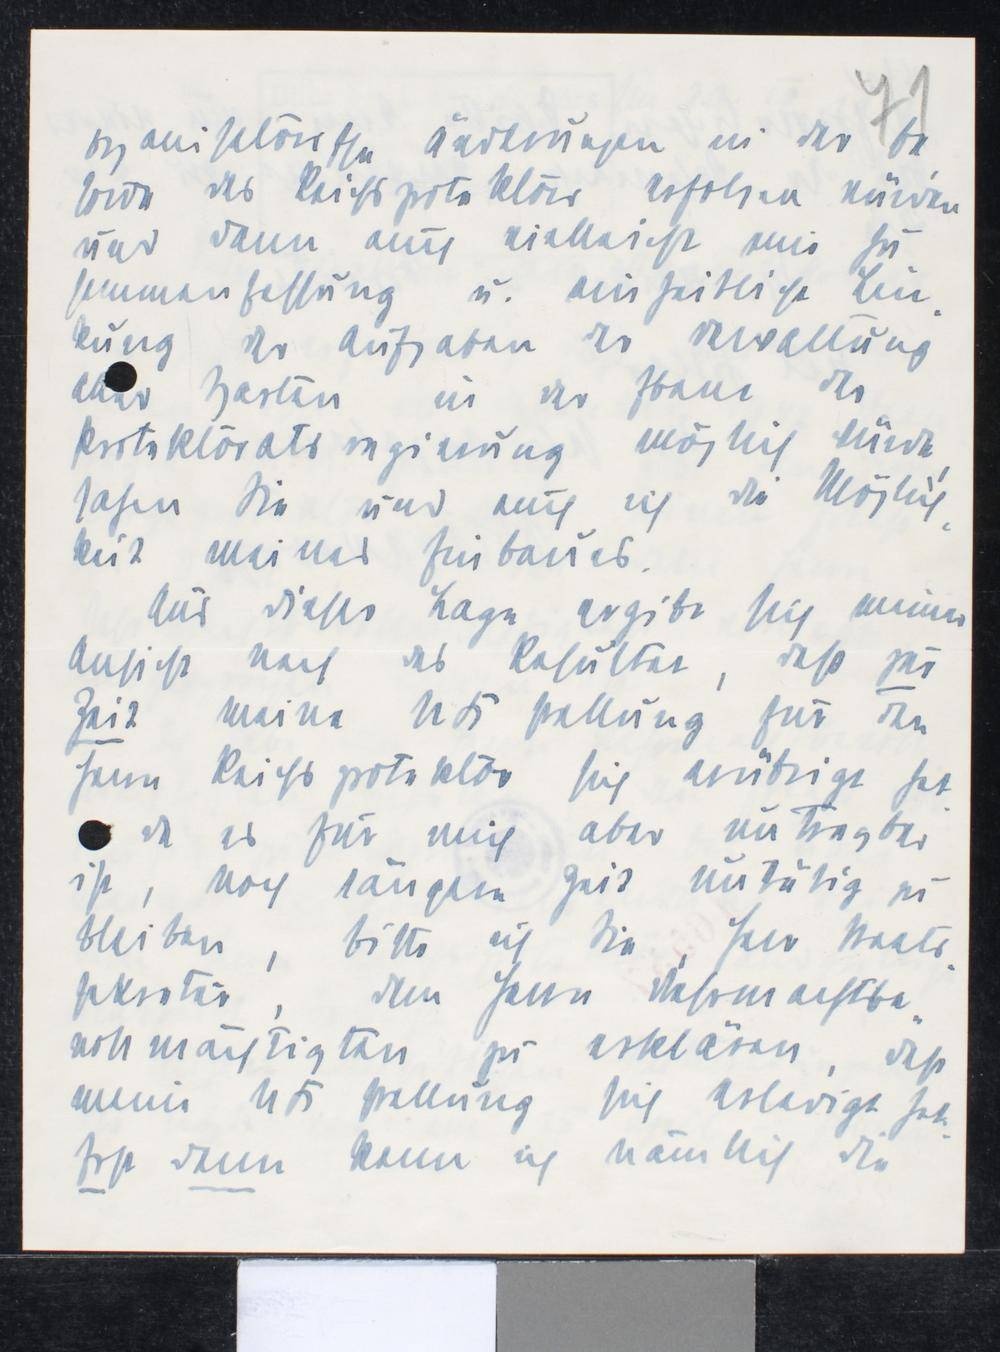 71
organisatorische Änderungen in der Be
hörde des Reichsprotektors erfolgen würden
und dann auch vielleicht eine Zu
sammenfassung u. einheitliche Len-
kung der Aufgaben der Verwaltung
alter in der Ebene der
Protektoratsregierung möglich würde,
sahen Sie und auch ich die Möglich-
keit meines Einbaues.
Aus dieser Lage ergibt sich meiner
Ansicht nach das Resultat, daß zur
Zeit meine UK Stellung für den
Herrn Reichsprotektor sich erübrigt hat.
da es für mich aber untragbar
ist, noch längere Zeit untätig zu
bleiben, bitte ich Sie, Herr Staats-
sekretär, dem Herrn Wehrmachtbe-
vollmächtigten zu erklären, daß
meine UK Stellung sich erledigt hat.
Erst dann kann ich nämlich die